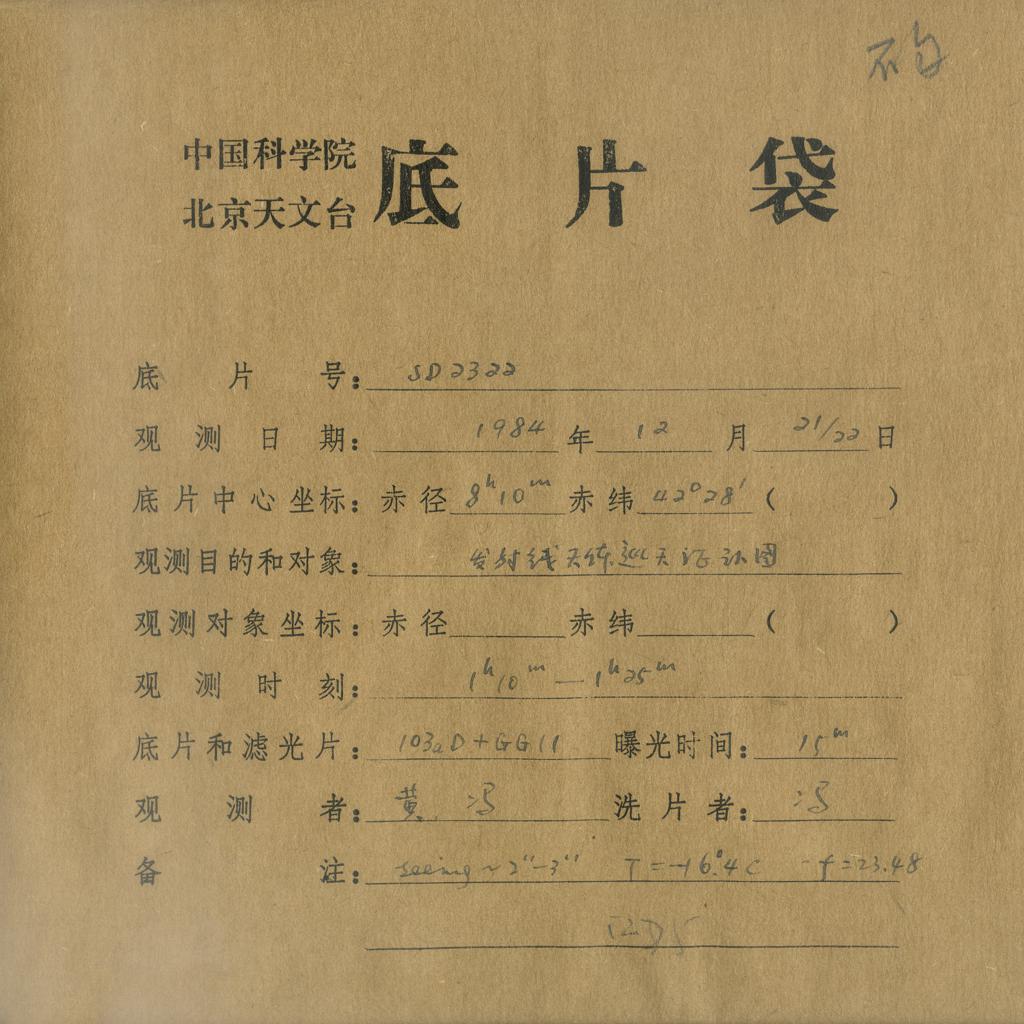 中国科学院
北京天文台 底片袋
底片号: SD2322
观测日期: 1984年 12月 21/22日
底片中心坐标: 赤径 8h10m 赤纬 42°28′ ( )
观测目的和对象: 发射线天体巡天证认图
观测对象坐标: 赤径 赤纬 ( )
观测时刻: 1h10m — 1h25m
底片和滤光片: 103aD+GG11 曝光时间: 15m
观测者: 黄 冯 洗片者: 冯
备注: seeing ~ 2″-3″ T=-16°.4C f=23.48